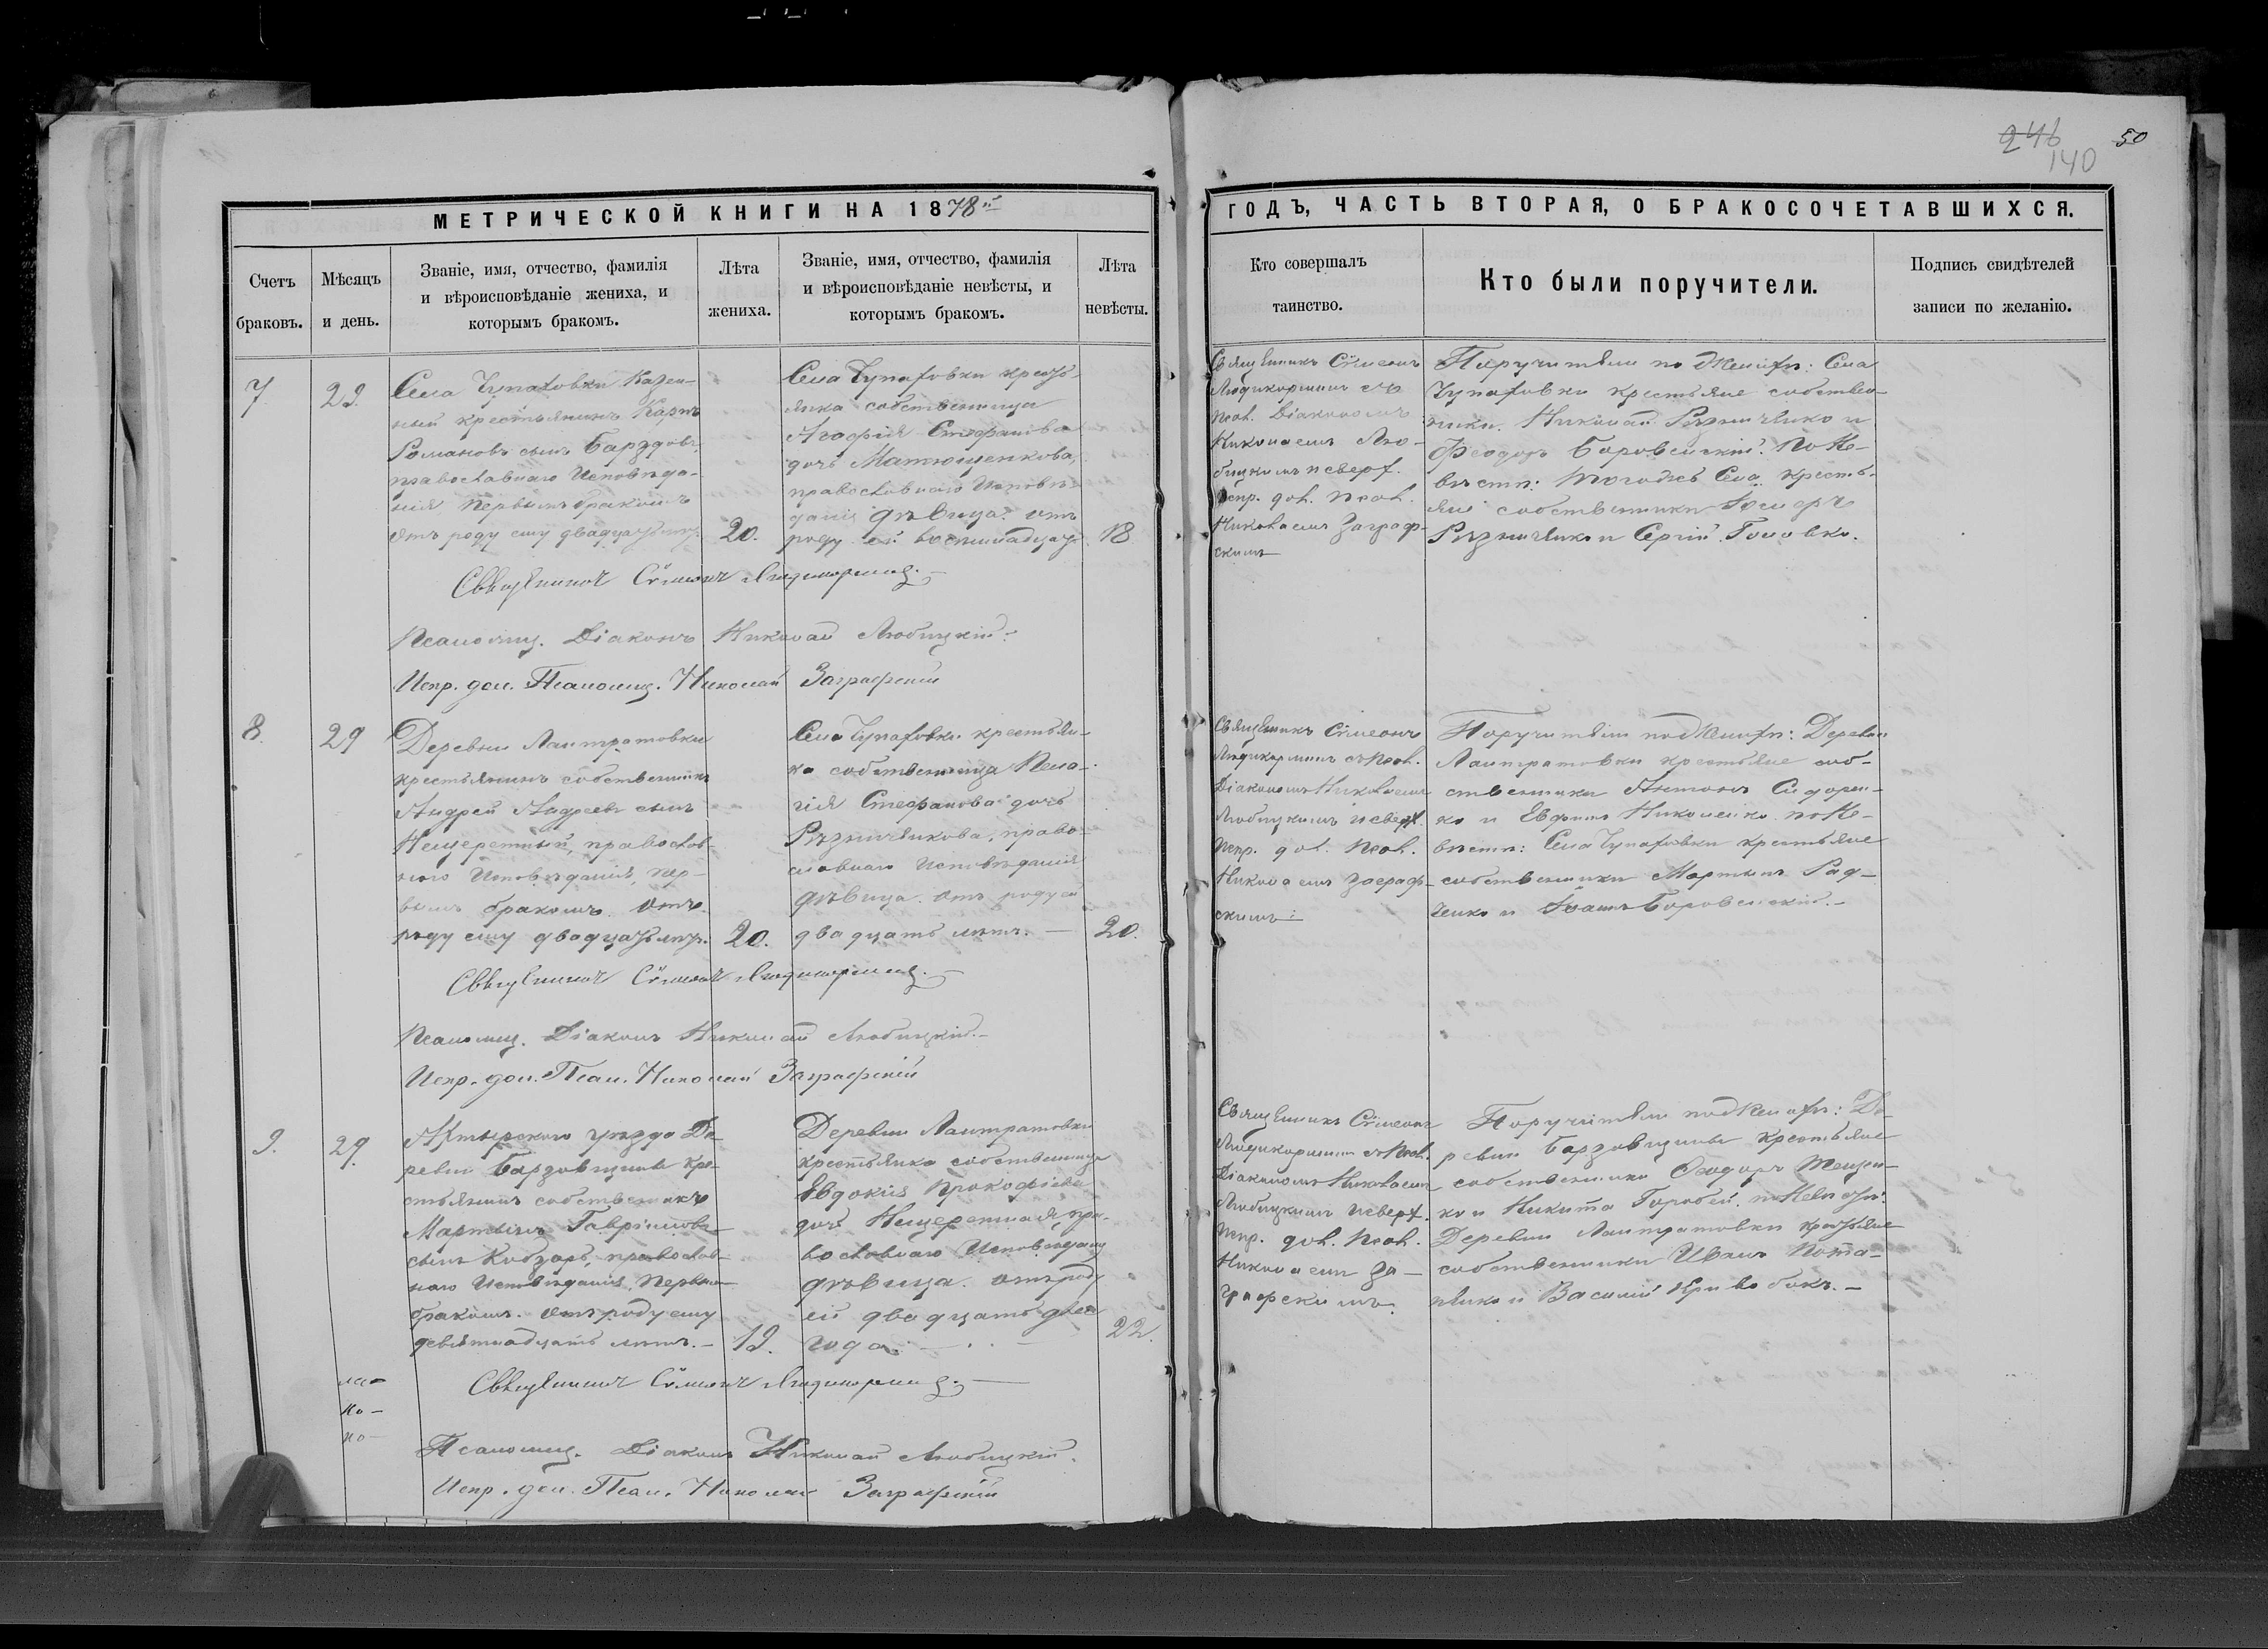 246
140
50
МЕТРИЧЕСКОЙ КНИГИ НА 1878й
ГОДЪ, ЧАСТЬ ВТОРАЯ, О БРАКОСОЧЕТАВШИХСЯ.
Счетъ
браковъ.
Мѣсяцъ
и день.
Званіе, имя, отчество, фамилія
и вѣроисповѣданіе жениха, и
которымъ бракомъ.
Лѣта
жениха.
Званіе, имя, отчество, фамилія
и вѣроисповѣданіе невѣсты, и
которымъ бракомъ.
Лѣта
невѣсты.
Кто совершалъ
таинство.
Кто были поручители.
Подпись свидѣтелей
записи по желанію.
7
Села Чупаховки Казен-
ный крестьянинъ Карпъ
Романовъ сынъ Барздовъ,
православнаго Исповѣда-
нія первымъ бракомъ
отъ роду ему двадцать
20.
Села Чупаховки кресть-
янка собственница
Агафія Стефанова
дочь Матющенкова,
православнаго Исповѣ-
данія дѣвица. отъ
роду ей восемнадцать
18
Священникъ Сѵмеонъ
Людикорминъ съ
псал. Діакономъ
Николаемъ Лю-
бицкимъ и сверх.
испр. дол. псал.
Николаемъ Заграф-
скимъ
Поручители по женихѣ: Села
Чупаховки крестьяне собствен-
ники. Николай Рѣзниченко и
Феодоръ Боровенскій. По Не-
вѣстѣ: того же Села кресть-
яне собственники
Рѣзниченко и Сергій Головко.
Священникъ Сѵмеонъ Людикорминъ.
Псаломщ. Діаконъ Николай Любицкій.
Испр. дол. Псаломщ. Николай Заграфскій
8.
29
Деревни Лантратовки
крестьянинъ собственникъ
Андрей Андреевъ сынъ
Нещеретный, православ-
наго Исповѣданія, пер-
вымъ бракомъ. Отъ
роду ему двадцать лѣтъ.
20.
Села Чупаховки крестьян-
ка собственница Пела-
гія Стефанова дочь
Рѣзниченкова, право-
славнаго Исповѣданія
дѣвица. отъ роду ей
двадцать лѣтъ. —
20.
Священникъ Сѵмеонъ
Людикорминъ съ псал.
Діакономъ Николаемъ
Любицкимъ и сверх.
испр. дол. псал.
Николаемъ Заграф-
скимъ
Поручители по женихѣ: Деревни
Лантратовки крестьяне соб-
ственники Антонъ Сидорен-
ко и Ефимъ Николенко. по Не-
вѣстѣ: Села Чупаховки крестьяне
собственники Мартынъ Рад-
ченко и Іоаннъ Боровенскій. —
Священникъ Сѵмеонъ Людикорминъ. —
Псаломщ. Діаконъ Николай Любицкій. —
Испр. дол. Псал. Николай Заграфскій
9.
29.
Ахтырскаго уѣзда Де-
ревни Барздовщины кре-
стьянинъ собственникъ
Мартынъ Гавріиловъ
сынъ Кобзарь, православ-
наго Исповѣданія, первымъ
бракомъ. отъ роду ему
девятнадцать лѣтъ. —
19.
Деревни Лантратовки
крестьянка собственница
Евдокія Прокофіева
дочь Нещеретная, пра-
вославнаго Исповѣданія
дѣвица. отъ роду
ей двадцать два
года. —
22.
Священникъ Сѵмеонъ
Людикорминъ съ псал.
Діакономъ Николаемъ
Любицкимъ и сверх.
испр. дол. псал.
Николаемъ За-
графскимъ.
Поручители по женихѣ: Де-
ревни Барздовщины крестьяне
собственники Ѳеодоръ Тещен-
ко и Никита Горобей. по Невѣстѣ:
Деревни Лантратовки крестьяне
собственники Иванъ Пота-
пенко и Василій Кривобокъ. —
Священникъ Сѵмеонъ Людикорминъ. —
ло —
но —
Псаломщ. Діаконъ Николай Любицкій.
Испр. дол. Псал. Николай Заграфскій